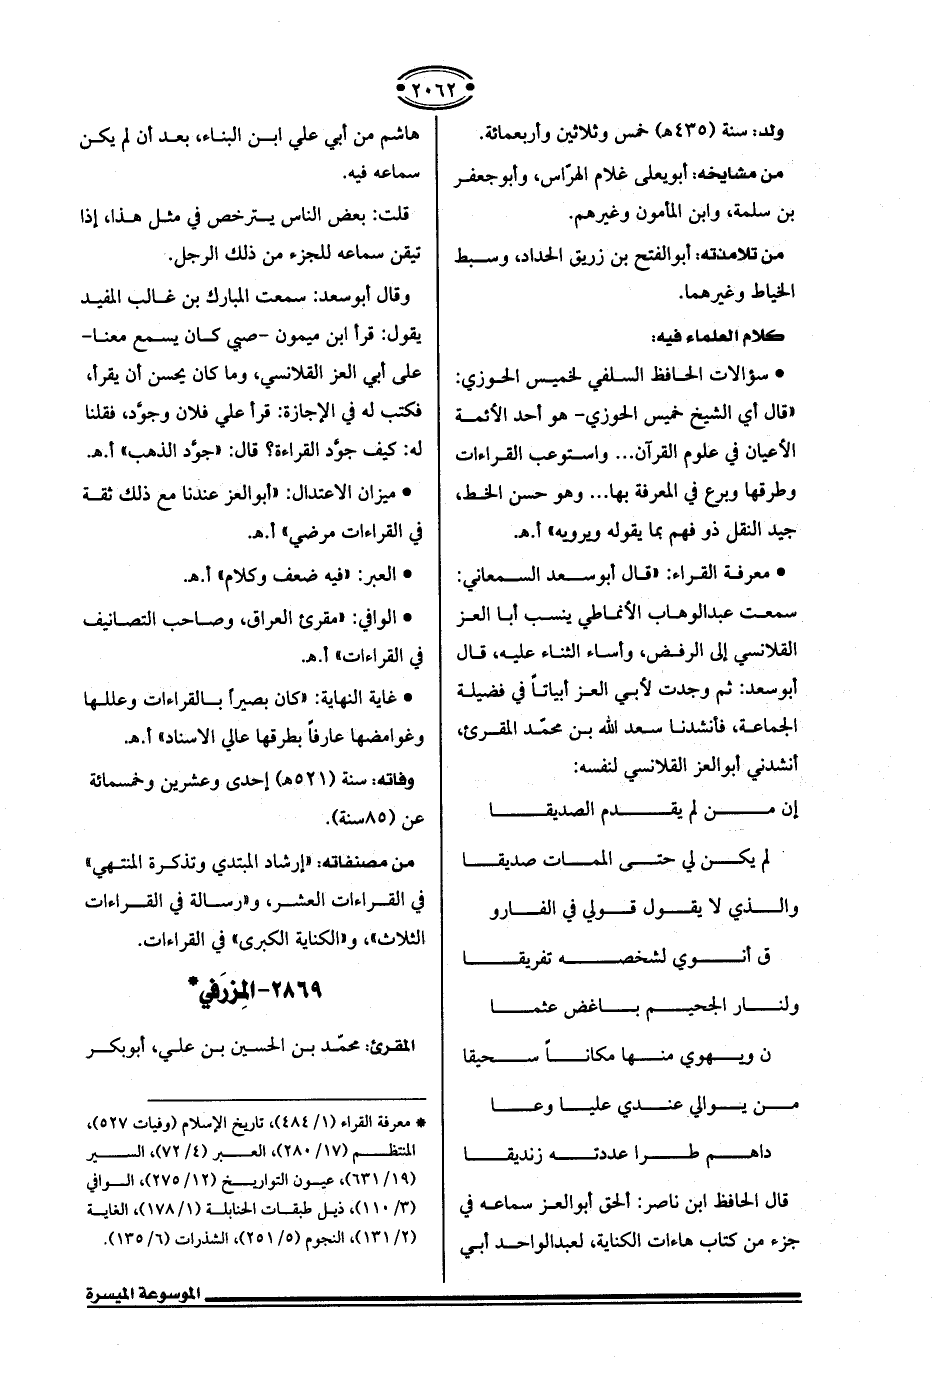 ٢٠٦٢
ولد: سنة (٤٣٥هـ) خمس وثلاثين وأربعمائة.
من مشايخه: أبويعلى غلام الهرّاس، وأبوجعفر
بن سلمة، وابن المأمون وغيرهم.
من تلامذته: أبوالفتح بن زريق الحداد، وسبط
الخياط وغيرهما.
كلام العلماء فيه:
• سؤالات الحافظ السلفي لخميس الحوزي:
«قال أي الشيخ خميس الحوزي- هو أحد الأئمة
الأعيان في علوم القرآن... واستوعب القراءات
وطرقها وبرع في المعرفة بها... وهو حسن الخط،
جيد النقل ذو فهم بما يقوله ويرويه» أ.هـ.
• معرفة القراء: «قال أبوسعد السمعاني:
سمعت عبدالوهاب الأنماطي ينسب أبا العز
القلانسي إلى الرفض، وأساء الثناء عليه، قال
أبوسعد: ثم وجدت لأبي العز أبياتاً في فضيلة
الجماعة، فأنشدنا سعد الله بن محمّد المقرئ،
أنشدني أبوالعز القلانسي لنفسه:
إن من لم يقدم الصديقا
لم يكن لي حتى الممات صديقا
والذي لا يقول قولي في الفارو
ق أنوي لشخصه تفريقا
ولنار الجحيم باغض عثما
ن ويهوي منها مكاناً سحيقا
من يوالي عندي عليا وعا
داهم طرا عددته زنديقا
قال الحافظ ابن ناصر: ألحق أبوالعز سماعه في
جزء من كتاب هاءات الكناية، لعبدالواحد أبي
هاشم من أبي علي ابن البناء، بعد أن لم يكن
سماعه فيه.
قلت: بعض الناس يترخص في مثل هذا، إذا
تيقن سماعه للجزء من ذلك الرجل.
وقال أبوسعد: سمعت المبارك بن غالب المفيد
يقول: قرأ ابن ميمون -صبي كان يسمع معنا-
على أبي العز القلانسي، وما كان يحسن أن يقرأ،
فكتب له في الإجازة: قرأ علي فلان وجوَّد، فقلنا
له: كيف جوَّد القراءة؟ قال: «جوَّد الذهب» أ.هـ.
• ميزان الاعتدال: «أبوالعز عندنا مع ذلك ثقة
في القراءات مرضي» أ.هـ.
• العبر: «فيه ضعف وكلام» أ.هـ.
• الوافي: «مقرئ العراق، وصاحب التصانيف
في القراءات» أ.هـ.
• غاية النهاية: «كان بصيراً بالقراءات وعللها
وغوامضها عارفاً بطرقها عالي الاسناد» أ.هـ.
وفاته: سنة (٥٢١هـ) إحدى وعشرين وخمسمائة
عن (٨٥سنة).
من مصنفاته: «إرشاد المبتدي وتذكرة المنتهي»
في القراءات العشر، و«رسالة في القراءات
الثلاث»، و«الكناية الكبرى» في القراءات.
٢٨٦٩-المِزرَفي*
المقرئ: محمّد بن الحسين بن علي، أبوبكر
* معرفة القراء (١/ ٤٨٤)، تاريخ الإسلام (وفيات ٥٢٧)،
المنتظم (١٧/ ٢٨٠)، العبر (٤/ ٧٢)، السير
(١٩/ ٦٣١)، عيون التواريخ (١٢/ ٢٧٥)، الوافي
(٣/ ١١٠)، ذيل طبقات الحنابلة (١/ ١٧٨)، الغاية
(٢/ ١٣١)، النجوم (٥/ ٢٥١)، الشذرات (٦/ ١٣٥).
الموسوعة الميسرة